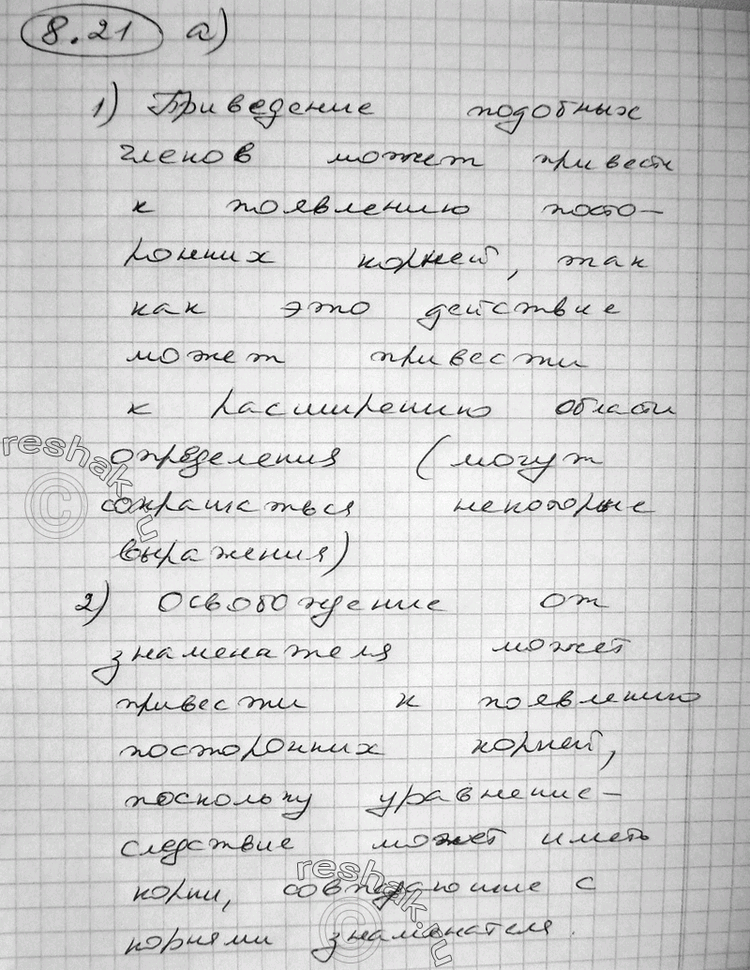 8.21 а)
1) Приведение подобных
членов может привести
к появлению посто-
ронних корней, так
как это действие
может привести
к расширению области
определения (могут
сокращаться некоторые
выражения)
2) Освобождение от
знаменателя может
привести к появлению
посторонних корней,
поскольку уравнение-
следствие может иметь
корни, совпадающие с
корнями знаменателя.
reshak.ru
reshak.ru